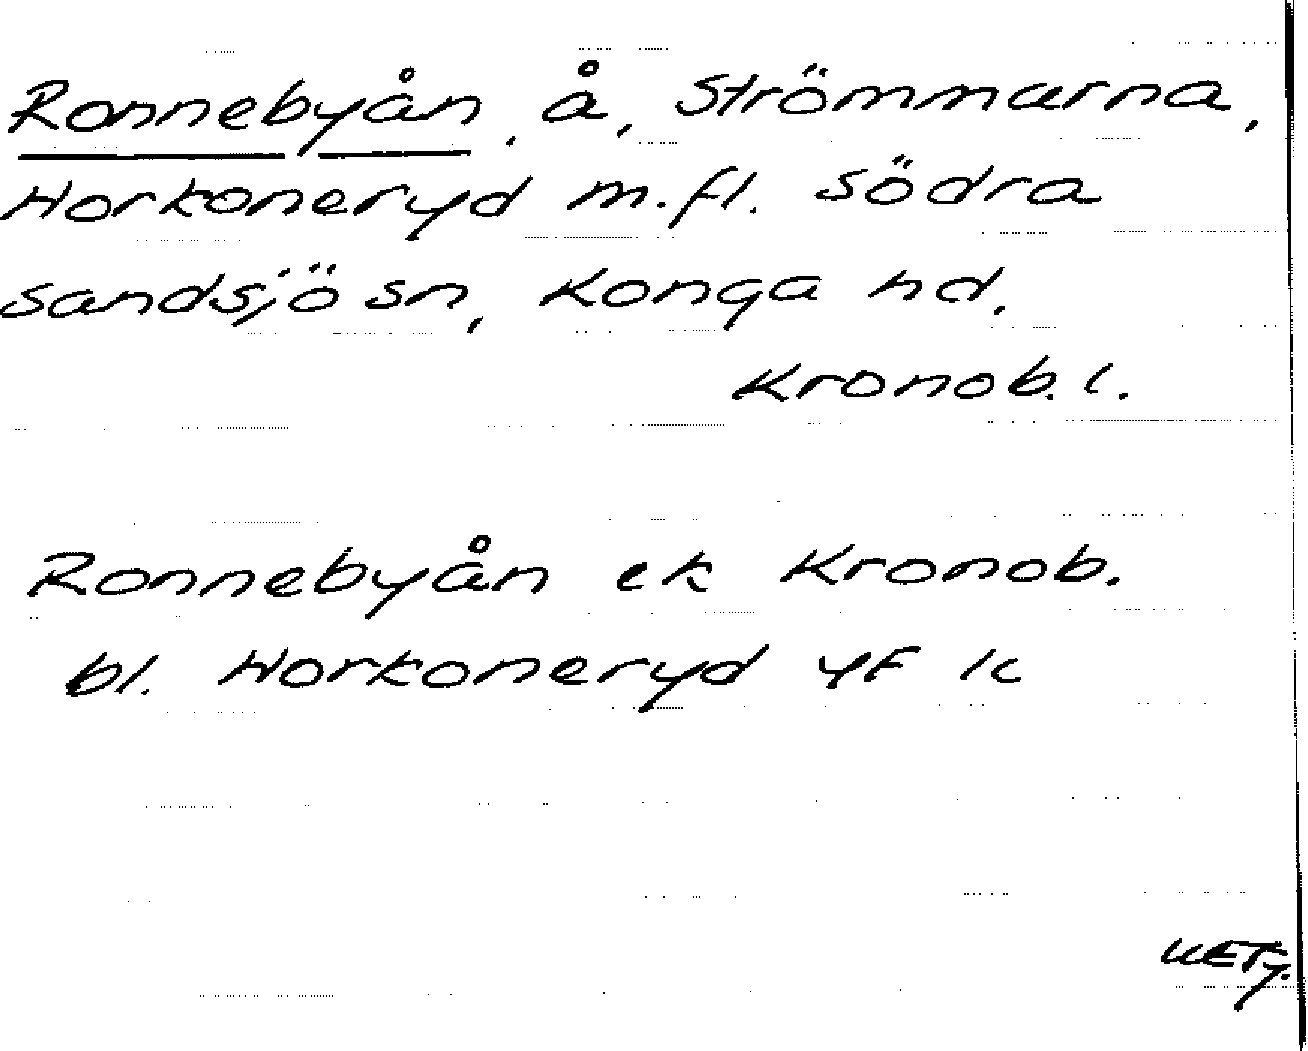 Ronnebyån, å, Strömmarna,
Horkoneryd m.fl. Södra
Sandsjö sn, Konga hd.
Kronob. l.
Ronnebyån ek Kronob.
bl. Horkoneryd yF lc